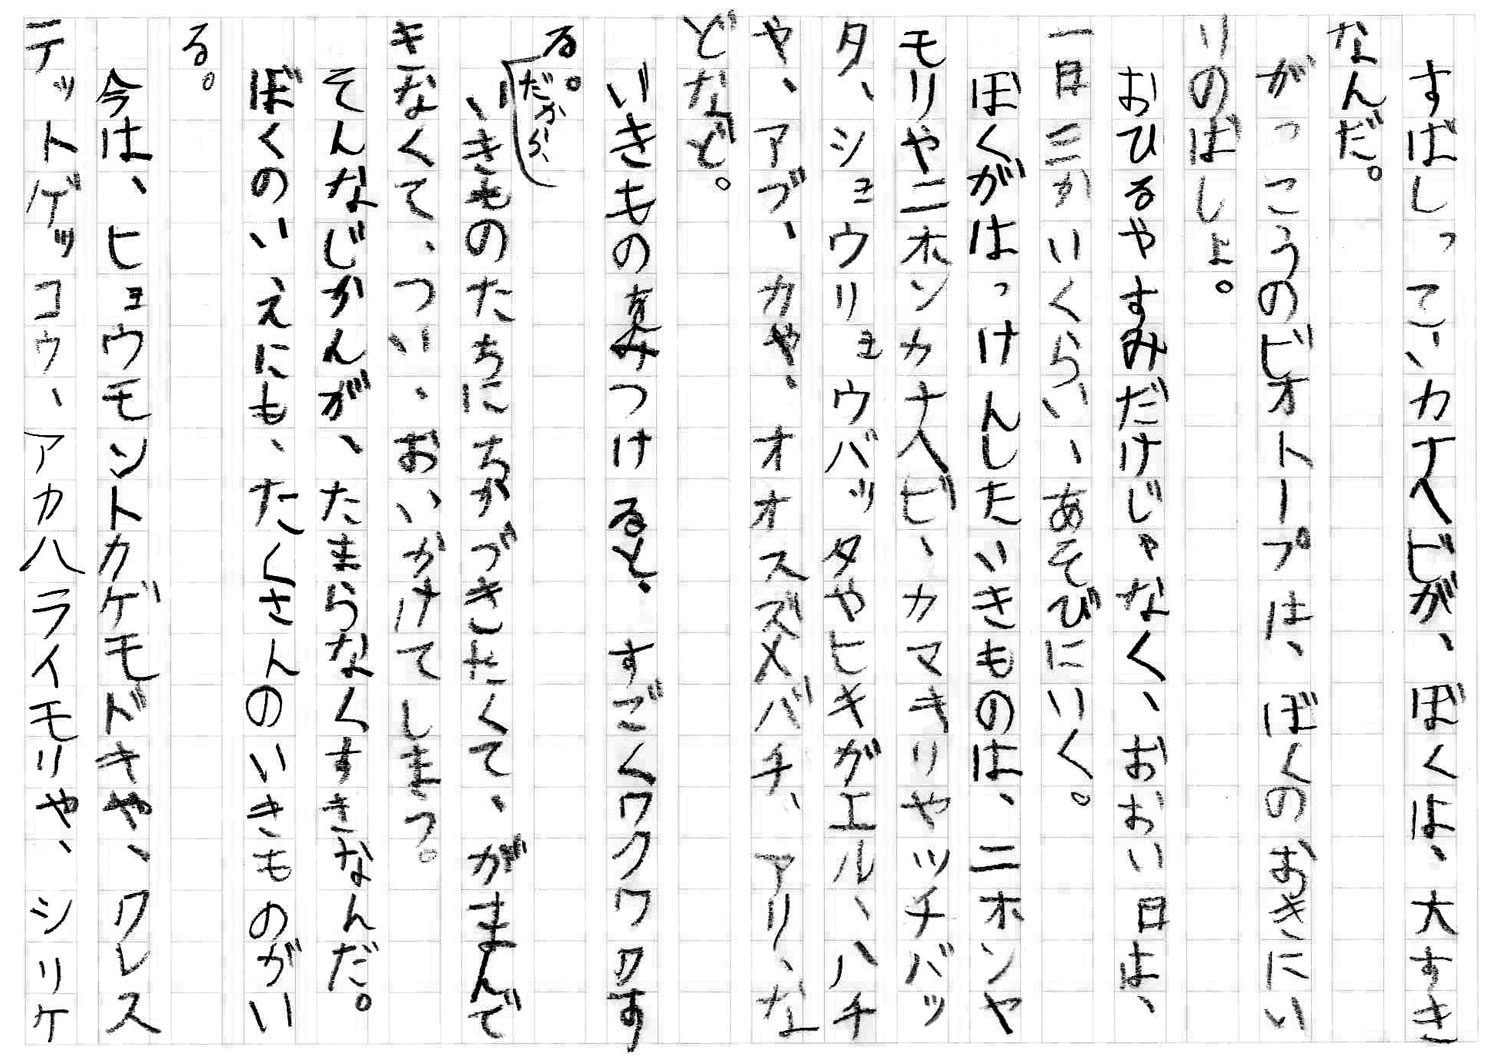 すばしっこいカナヘビが、ぼくは、大すき
なんだ。
がっこうのビオトープは、ぼくのおきにい
りのばしょ。
おひるやすみだけじゃなく、おおい日は、
一日三かいくらい、あそびにいく。
ぼくがはっけんしたいきものは、ニホンヤ
モリやニホンカナヘビ、カマキリやツチバッ
タ、ショウリョウバッタやヒキガエル、ハチ
や、アブ、カや、オオスズメバチ、アリ、な
どなど。
いきものを見つけると、すごくワクワクす
る。
だから、
いきものたちにちかづきたくて、がまんで
きなくて、つい、おいかけてしまう。
そんなじかんが、たまらなくすきなんだ。
ぼくのいえにも、たくさんのいきものがい
る。
今は、ヒョウモントカゲモドキや、クレス
テットゲッコウ、アカハライモリや、シリケ